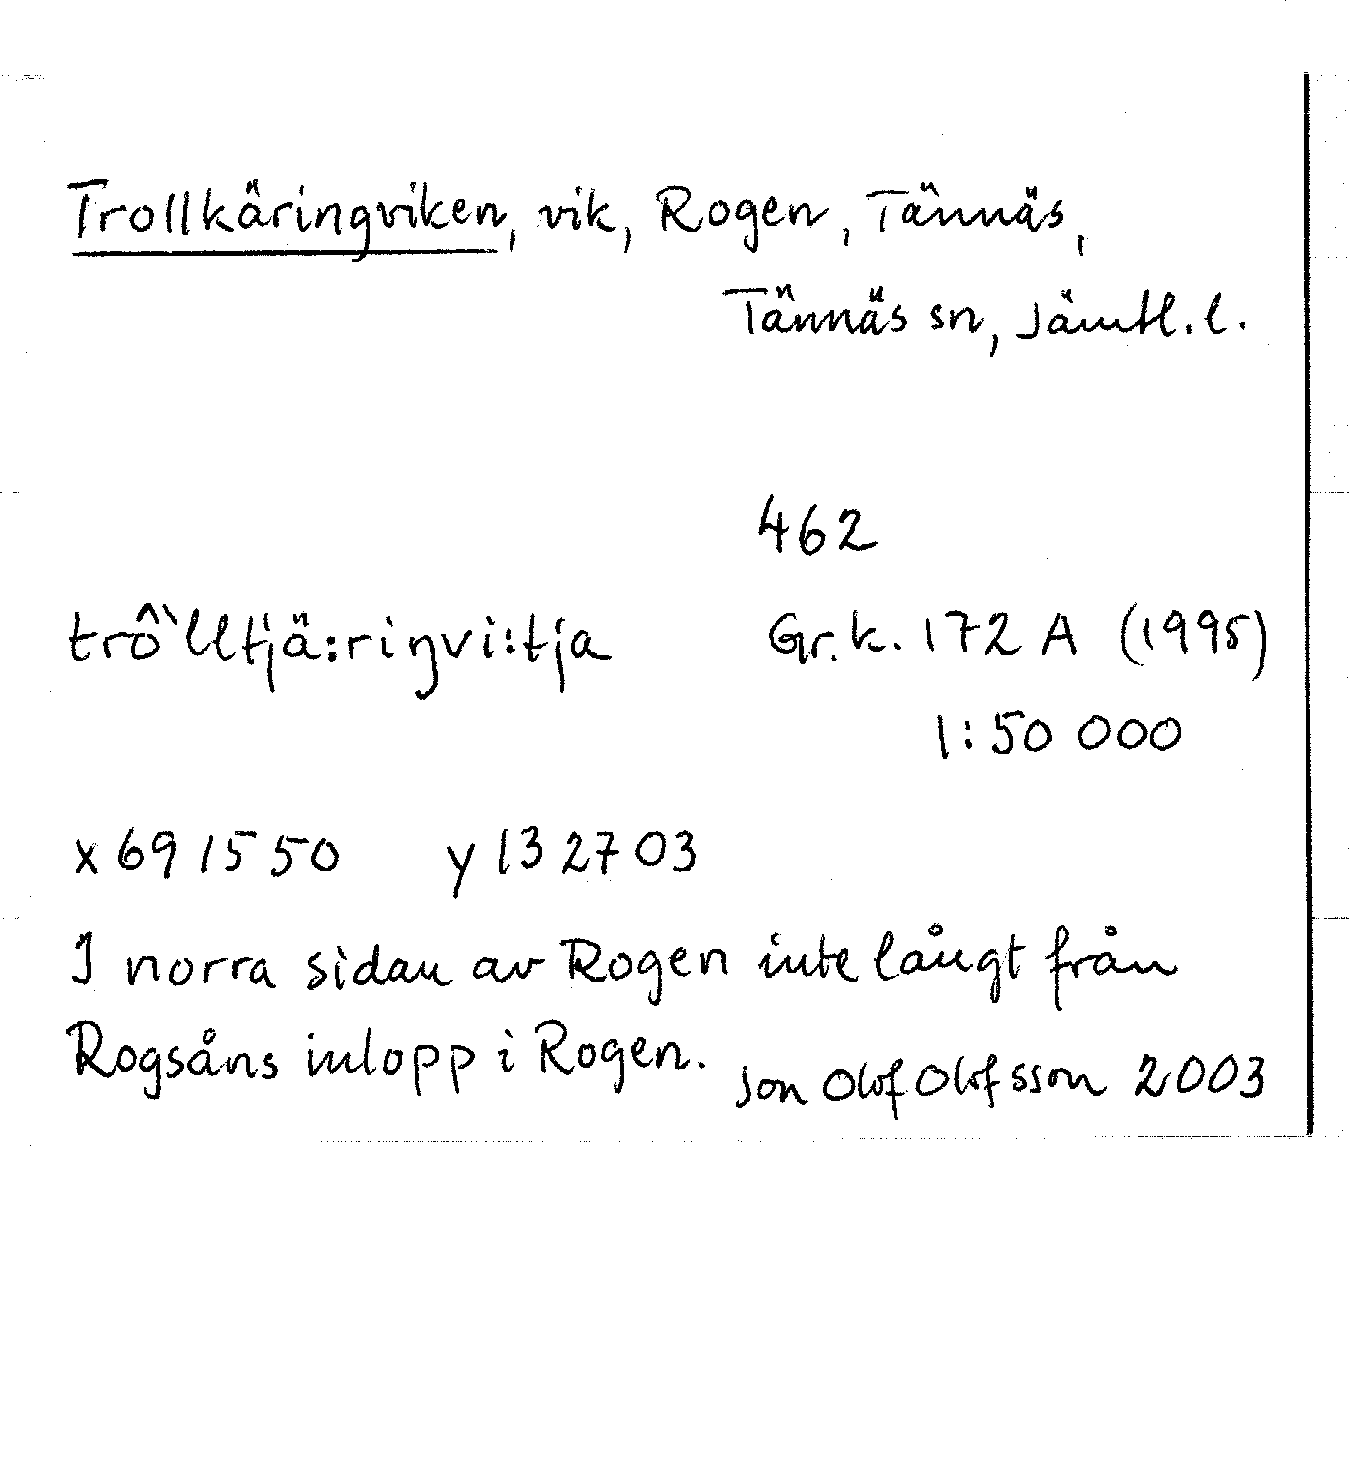 Trollkäringviken, vik, Rogen, Tännäs,
Tännäs sn, Jämtl. l.
462
trô`lltjä:riŋvi:tja
Gr.k. 172 A (1995)
1:50 000
x 691550 y 132703
I norra sidan av Rogen inte långt från
Rogsåns inlopp i Rogen.
Jon Olof Olofsson 2003